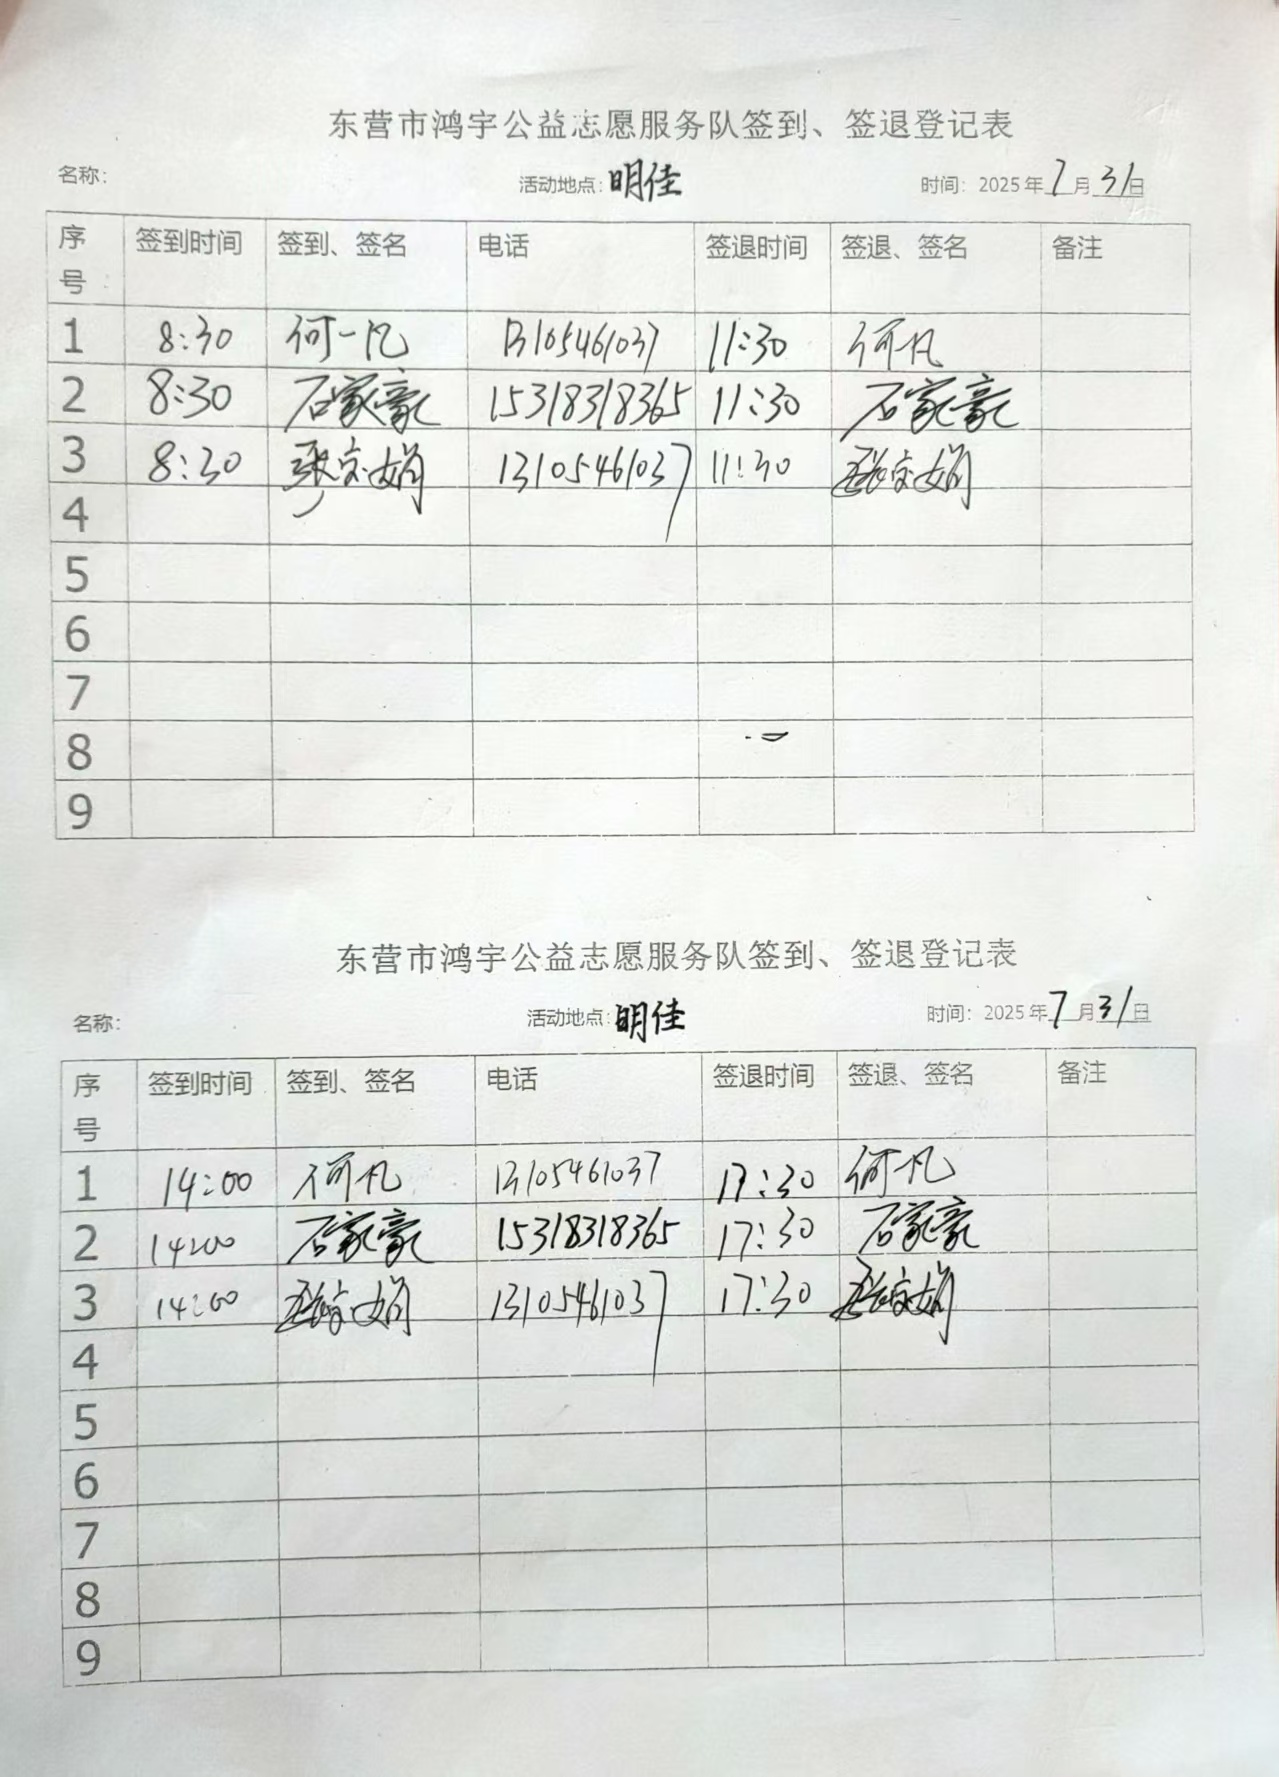 东营市鸿宇公益志愿服务队签到、签退登记表
名称： 活动地点：明佳 时间：2025年7月31日
序号 签到时间 签到、签名 电话 签退时间 签退、签名 备注
1 8:30 何一凡 13105461037 11:30 何凡
2 8:30 石家豪 15318318365 11:30 石家豪
3 8:30 张文娟 13105461037 11:30 张文娟
4
5
6
7
8
9
东营市鸿宇公益志愿服务队签到、签退登记表
名称： 活动地点：明佳 时间：2025年7月31日
序号 签到时间 签到、签名 电话 签退时间 签退、签名 备注
1 14:00 何凡 13105461037 17:30 何凡
2 14:00 石家豪 15318318365 17:30 石家豪
3 14:00 张文娟 13105461037 17:30 张文娟
4
5
6
7
8
9